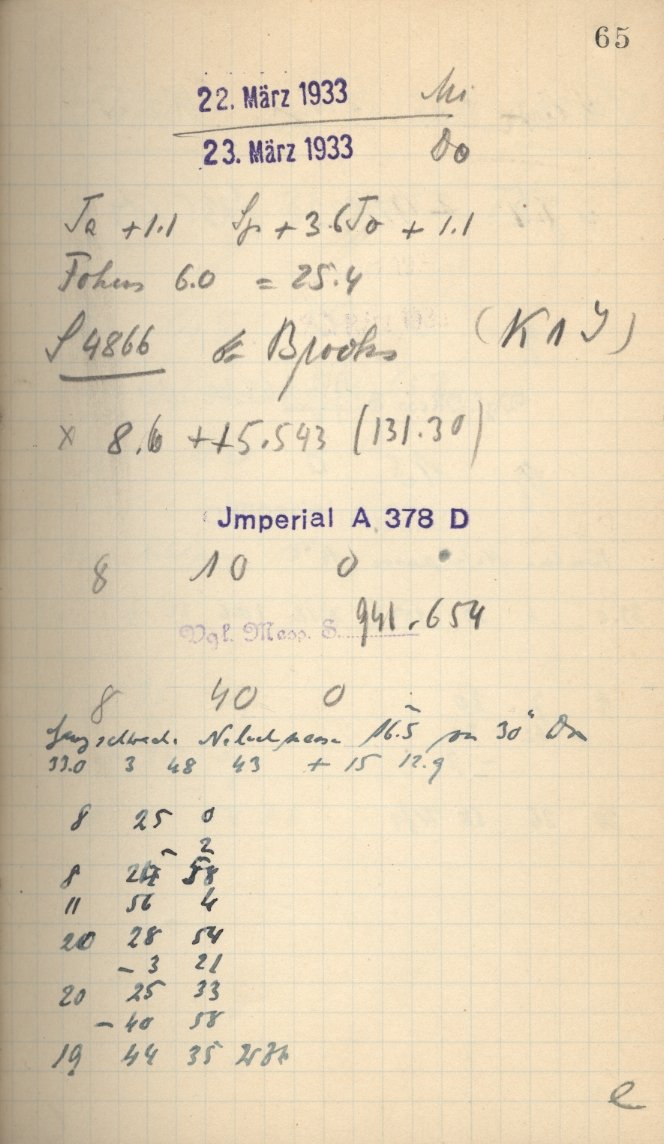 65
22. März 1933 Mi
23. März 1933 Do
Ta +1.1 Sp +3.6 To +1.1
Fokus 6.0 = 25.4
S 4866 Brooks (K 1 J)
x 8.6 ++5.543 (131.30)
Jmperial A 378 D
8 10 0
Vgl. Mess. S. 941.654
8 40 0
schwach. 16.5 30" Dm
33.0 3 48 43 + 15 12.9
8 25 0
2
8 58
11 56 4
20 28 54
-3 21
20 25 33
-40 58
19 44 35
e